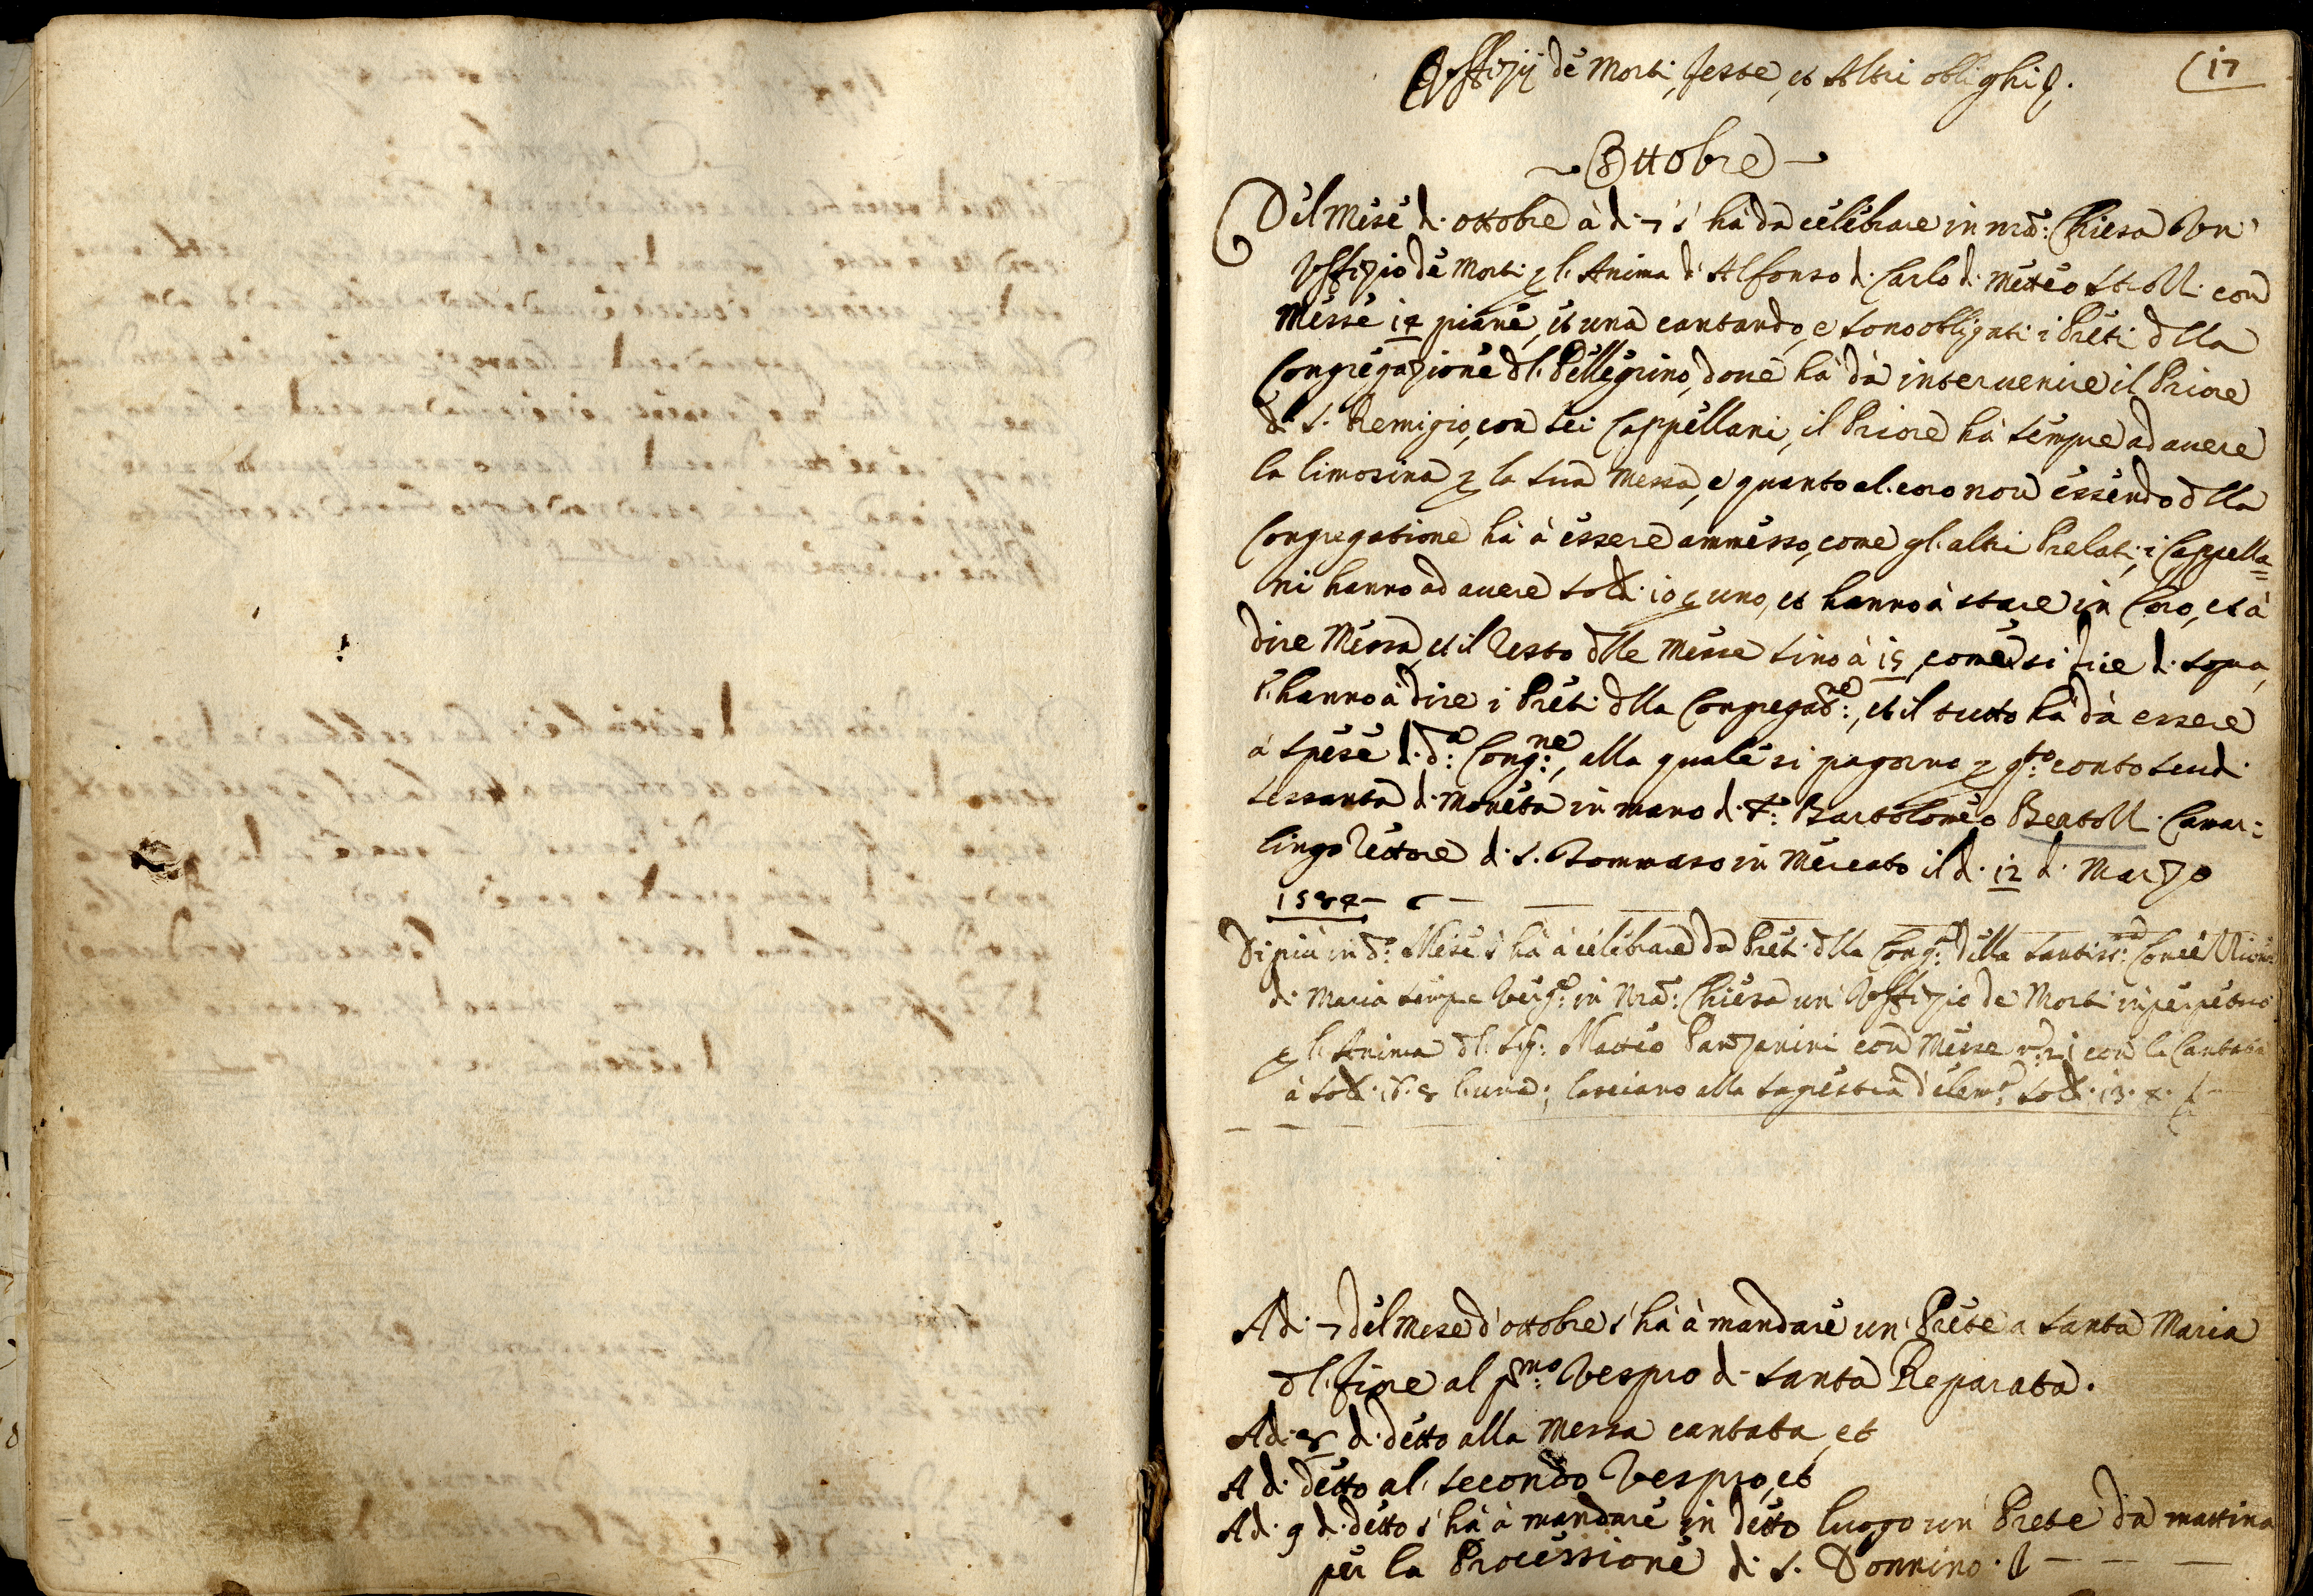 Offizij de Morti, feste, et Altri oblighi.
17
Ottobre
Del Mese di ottobre à di 7 s' hà da celebrare in nra: Chiesa Un'
Uffizio de Morti p l'Anima d' Alfonso di Carlo di Matteo Strozzi con
Messe 14 piane, et una cantando, e sono obligati i Preti dlla
Congregazione dl Pellegrino, doue hà dà interuenire il Priore
di S. Remigio, con sei Cappellani, il Priore hà sempre ad auere
la limosina p la sua Messa, e quanto al coro non essendo dlla
Congregatione hà à essere ammesso, come gl'altri Prelati, i Cappella=
ni hanno ad auere sold. 10 p uno, et hanno à stare in Coro, et à
dire Messa, et il resto dlle Messe sino à 15, come si dice di sopra,
l'hanno à dire i Preti dlla Congregat:ne, et il tutto hà dà essere
à spese di d:a Cong:ne, alla quale si pagorno p q:to conto scudi
sessanta di Moneta in mano di Bartolomeo Camar=
lingo Rettore di S. Tommaso in Mercato il di 12 di Marzo
1584
Di più in d:o Mese s' hà à celebrare da Preti dlla Cong:e della Santiss:a Concezzione
di Maria sempre Verg:e in Nra: Chiesa un' Uffizio de Morti in perpetuo
p l'Anima dl Sig: Matteo Panzanini con Messe n:o 21 con la Cantata
à sold. l'una; lasciano alla sagrestia d'elem:e sold. 13. 4.
A di 7 del Mese d'ottobre s' hà à mandare un' Prete a Santa Maria
dl Fiore al p:mo Vespro di Santa Reparata.
A di 8 di detto alla Messa cantata, et
A di detto al secondo Vespro, et
A di 9 di detto s' hà à mandare in detto luogo un' Prete dà mattina
per la Processione di S. Donnino.